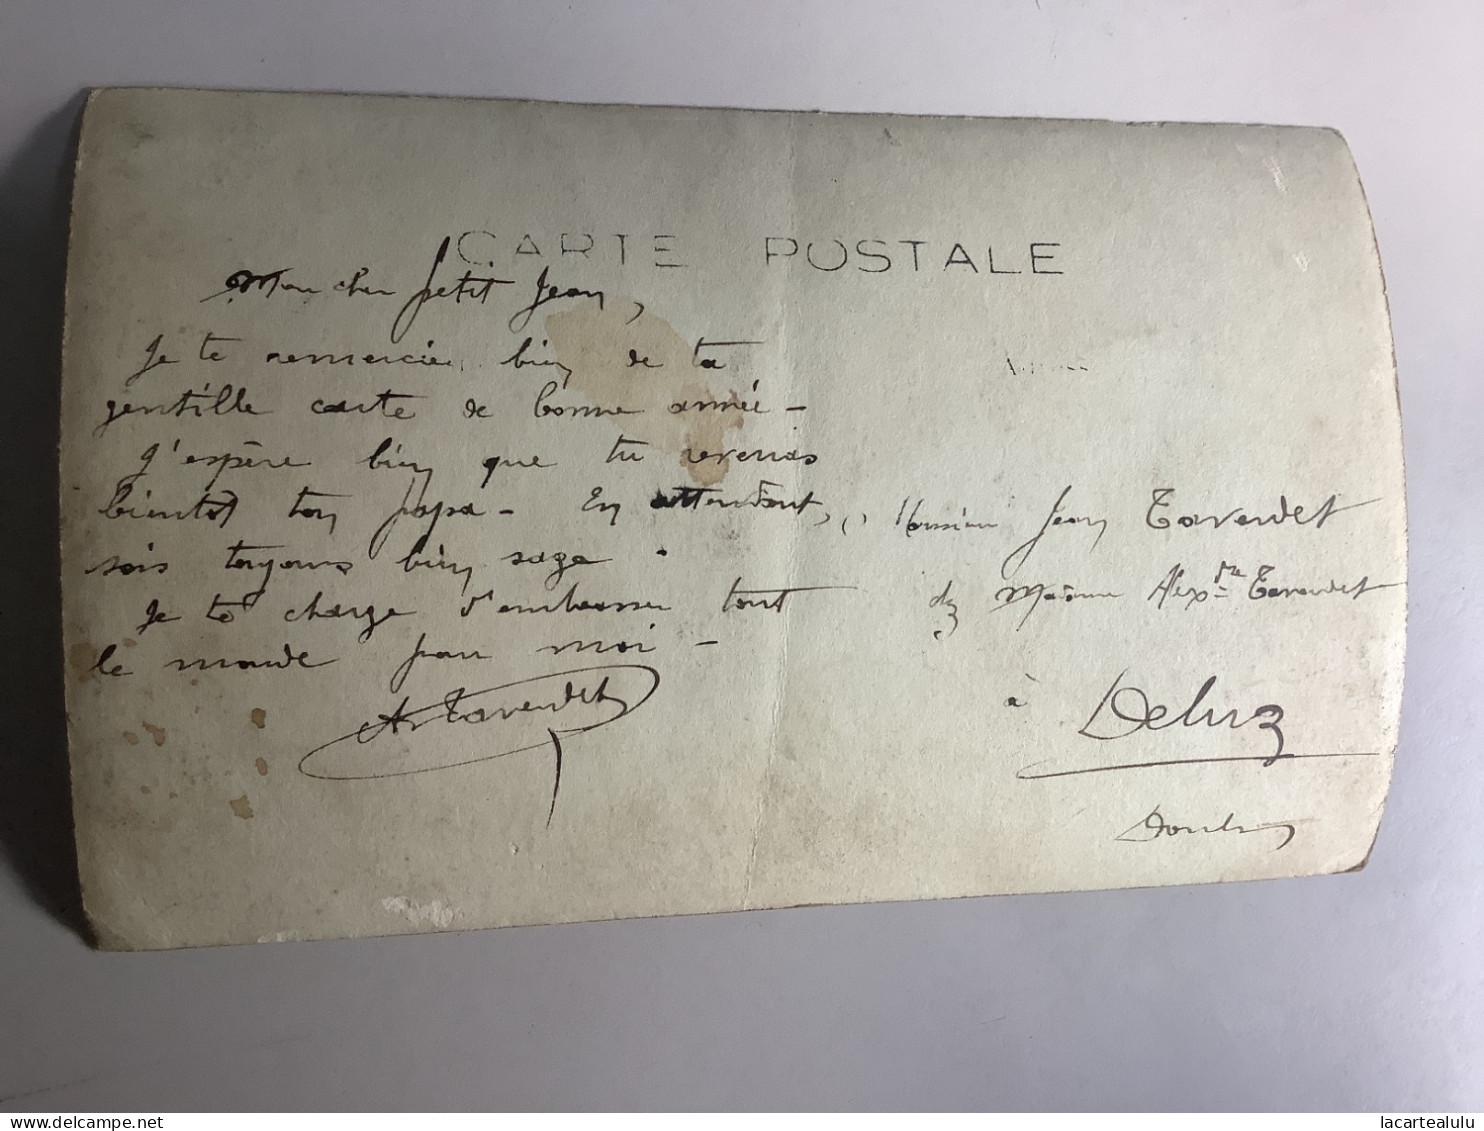 CARTE POSTALE
Mon cher petit Jean,
Je te remercie bien de ta
gentille carte de bonne année -
J'espère bien que tu reverras
bientôt ton papa - En attendant,
sois toujours bien sage.
Je te charge d'embrasser tout
le monde pour moi -
A. Taverdet
Monsieur Jean Taverdet
chez Madame Alexdre Taverdet
à Deluz
Doubs
delcampe.net
lacartealulu